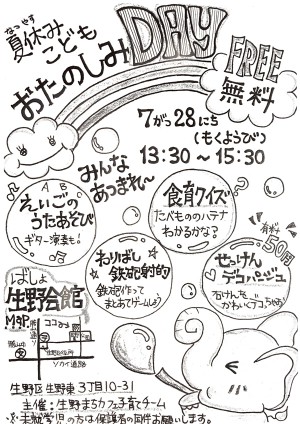 なつやすみ
夏休み
こども
おたのしみDAY
FREE
無料
7がつ28にち
(もくようび)
13:30~15:30
みんな
あつまれ〜
A B
えいごの
うたあそび
ギター演奏も!
食育クイズ
たべもののハテナ
わかるかな?
わりばし
鉄砲射的
鉄砲作って
まとあてゲームしよう
有料
50円
せっけん
デコパージュ
石けんを
かわいくデコちゃおう
ばしょ
生野会館
MAP
ココ
生野区役所
ソカイ道路
生野区生野東3丁目10-31
主催:生野まちカフェ子育てチーム
※未就学児の方は保護者の同伴お願いします。